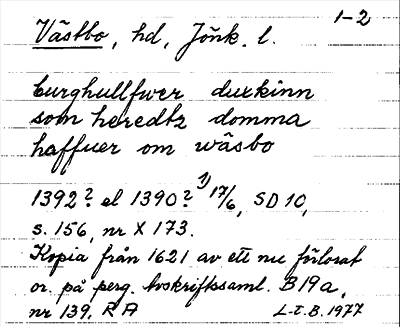 1-2
Västbo, hd, Jönk. l.
burghullfwer duxkinn
som heredtz domma
haffuer om wäsbo
1392? el 1390? 1) 17/6, SD 10,
s. 156, nr X 173.
Kopia från 1621 av ett nu förlorat
or. på perg. Avskriftssaml. B19a,
nr 139, RA
L-E.B. 1977